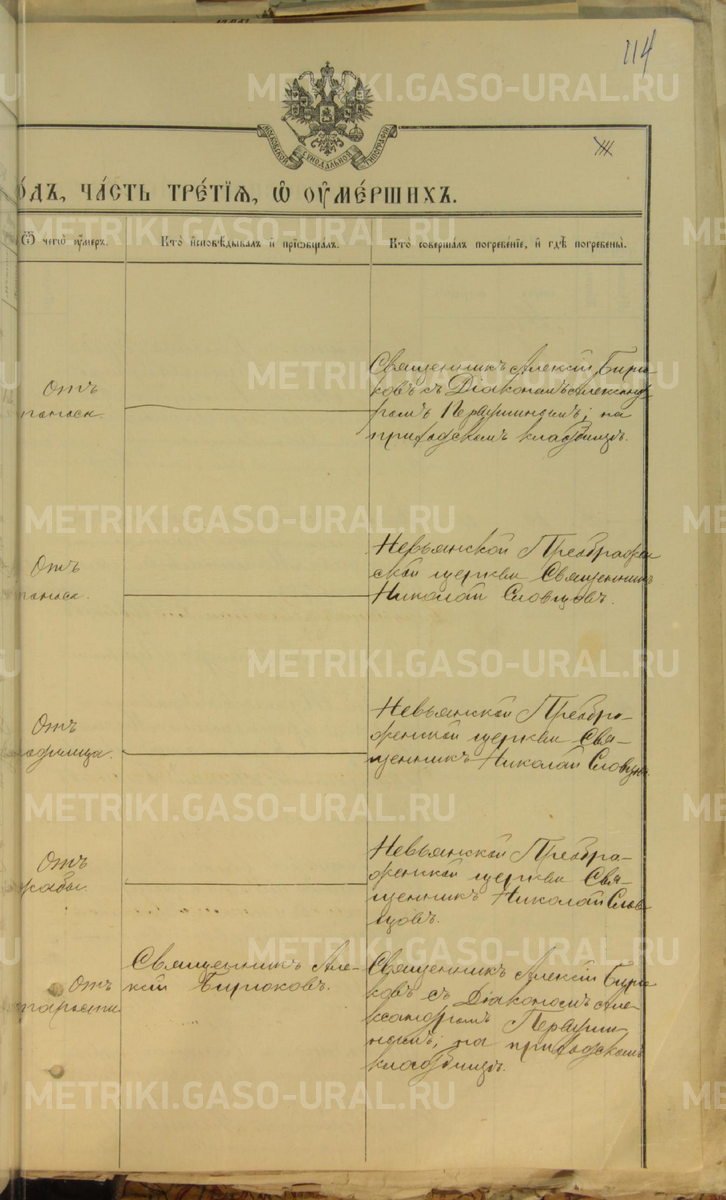 114
МОСКОВСКОЙ СУНОДАЛЬНОЙ ТИПОГРАФІИ
О́ДЪ, ЧА́СТЬ ТРЕ́ТІѦ, Ѡ҆ ОУ҆МЕ́РШИХЪ.
Ѿ чегѡ̀ оу҆́меръ.
Кто̀ и҆сповѣ́дывалъ и҆ прїѡбща́лъ.
Кто̀ соверша́лъ погребе́нїе, и҆ гдѣ̀ погребены̀.
Отъ
поноса.
Священникъ Алексій Бирю-
ковъ съ Діакономъ Александ-
ромъ Первушинымъ; на
приходскомъ кладбищѣ.
Отъ
поноса.
Невьянской Преображен
ской церкви Священникъ
Николай Словцовъ.
Отъ
родимца.
Невьянской Преобра-
женской церкви Свя-
щенникъ Николай Словцовъ.
Отъ
жабы
Невьянской Преобра-
женской церкви Свя-
щенникъ Николай Слов
цовъ.
Отъ
старости
Священникъ Але-
ксій Бирюковъ.
Священникъ Алексій Бирю
ковъ съ Діакономъ Але-
ксандромъ Первуши-
нымъ; на приходскомъ
кладбищѣ.
METRIKI.GASO-URAL.RU